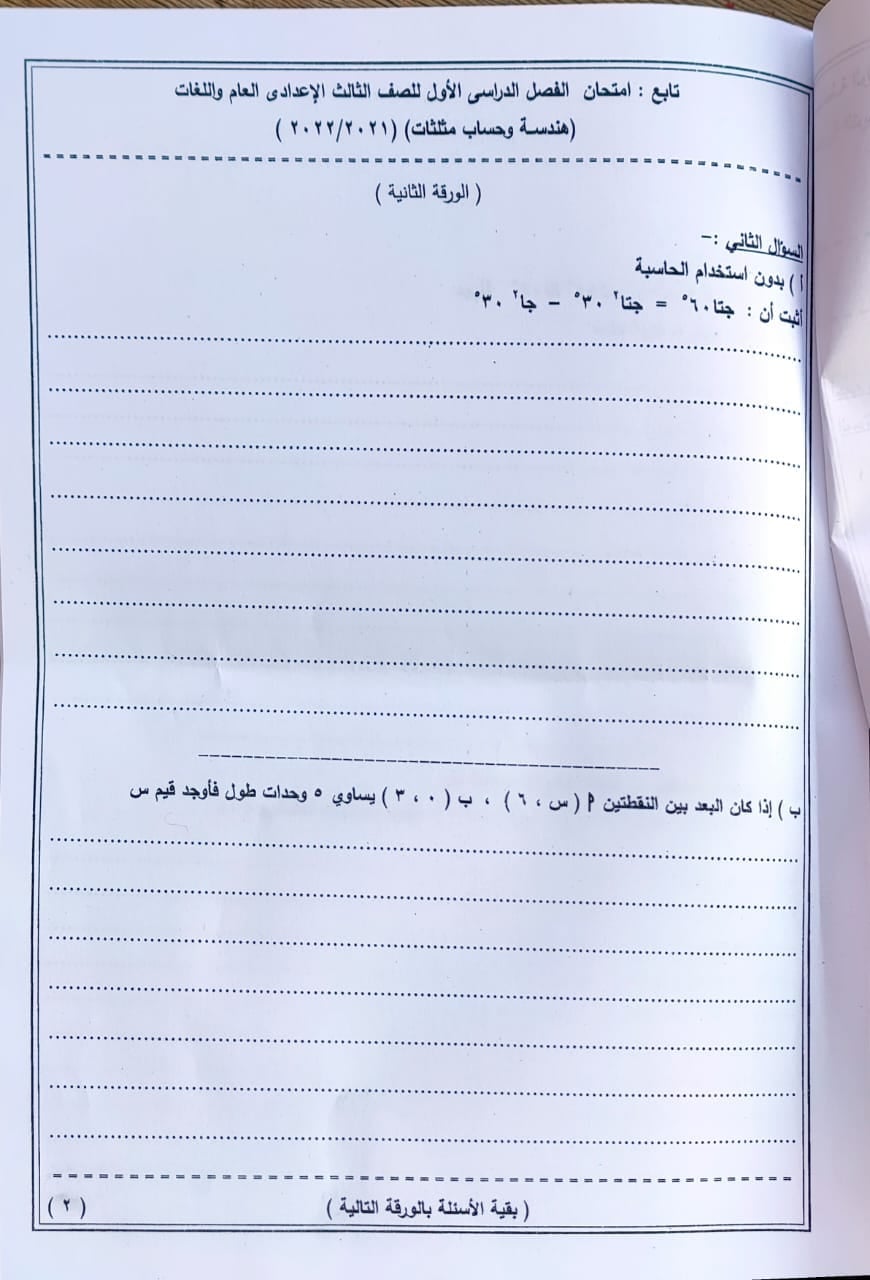 تابع : امتحان الفصل الدراسى الأول للصف الثالث الإعدادى العام واللغات
(هندسة وحساب مثلثات) (٢٠٢٢/٢٠٢١ )
( الورقة الثانية )
السؤال الثاني :-
أ ) بدون استخدام الحاسبة
أثبت أن : جتا٦٠° = جتا² ٣٠° - جا² ٣٠°
ب ) إذا كان البعد بين النقطتين م ( س ، ٦ ) ، ب ( ٠ ، ٣ ) يساوي ٥ وحدات طول فأوجد قيم س
( بقية الأسئلة بالورقة التالية )
( ٢ )